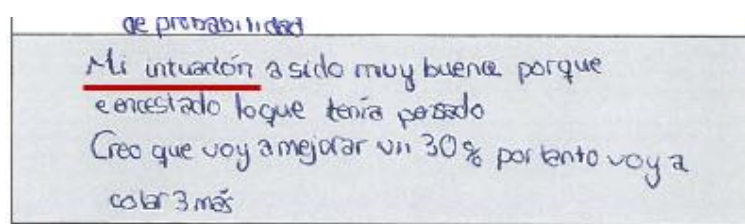 de probabilidad
Mi intuación a sido muy buena porque
e encestado loque tenía pensado
Creo que voy a mejorar un 30% por tanto voy a
colar 3 más